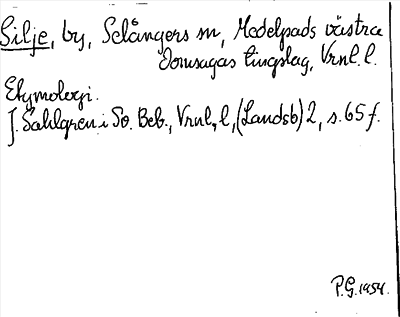 Silje, by, Selångers sn, Medelpads västra
Domsagas tingslag, Vrnl. l.
Etymologi.
J. Sahlgren i Sv. Beb., Vrnl, l, (Landsb) 2, s. 65 f.
P.G. 1954.